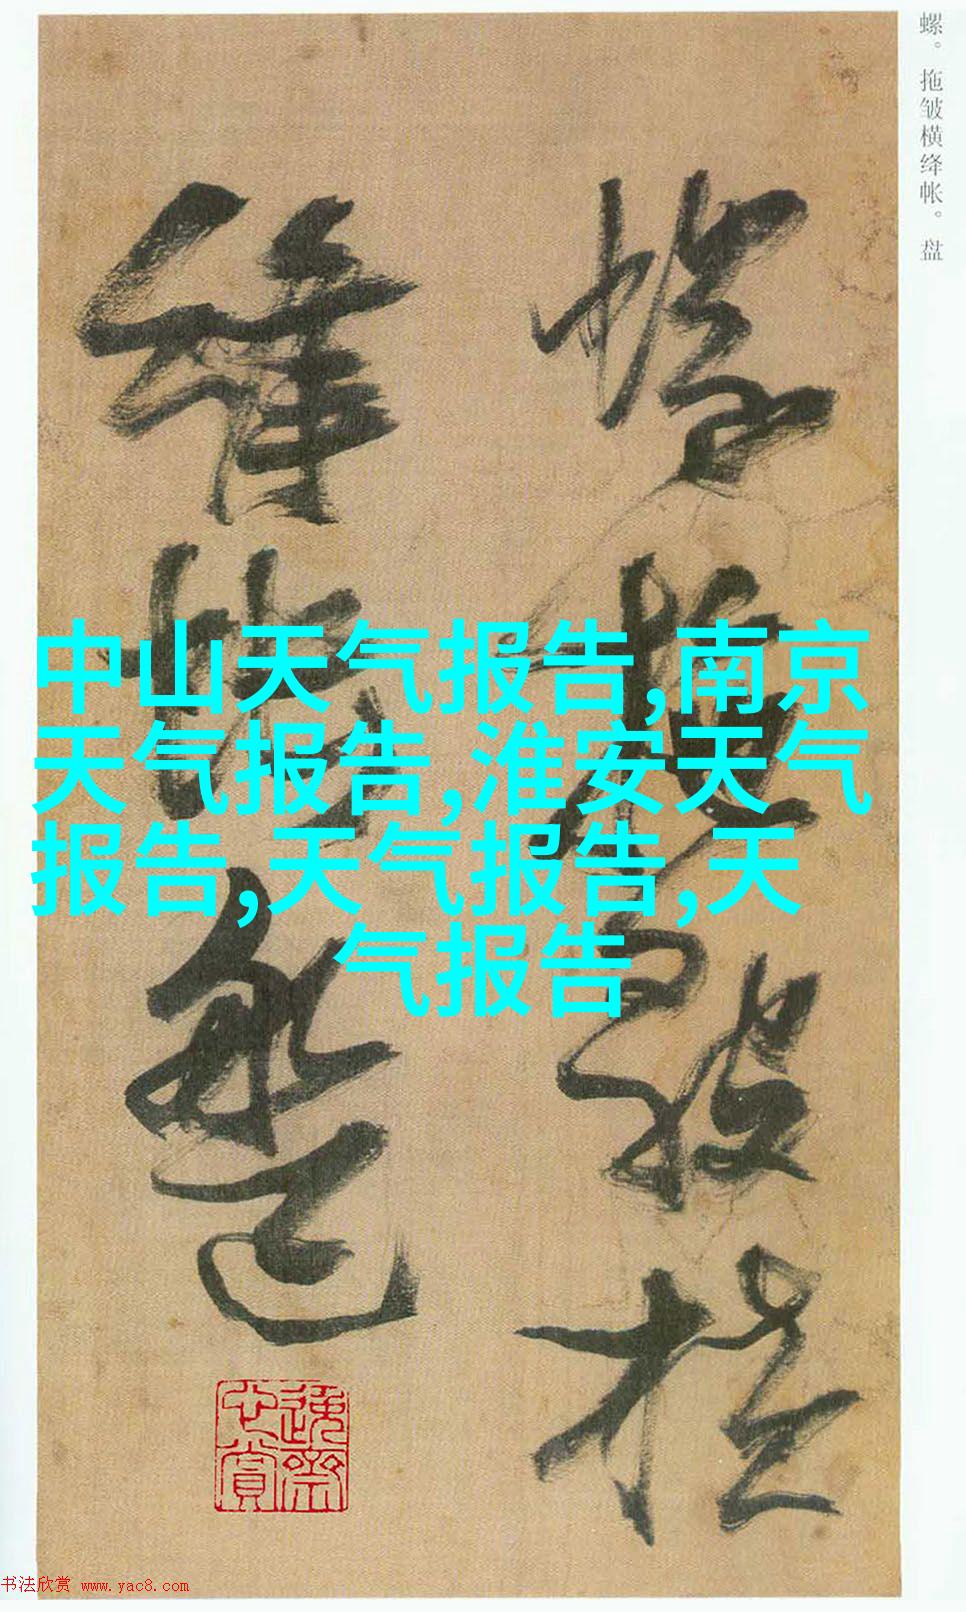 螺。拖皱横绛帐。盘
螺拖皺橫
絳帳盤
中山天气报告,南京
天气报告,淮安天气
报告,天气报告,天
气报告
书法欣赏 www.yac8.com